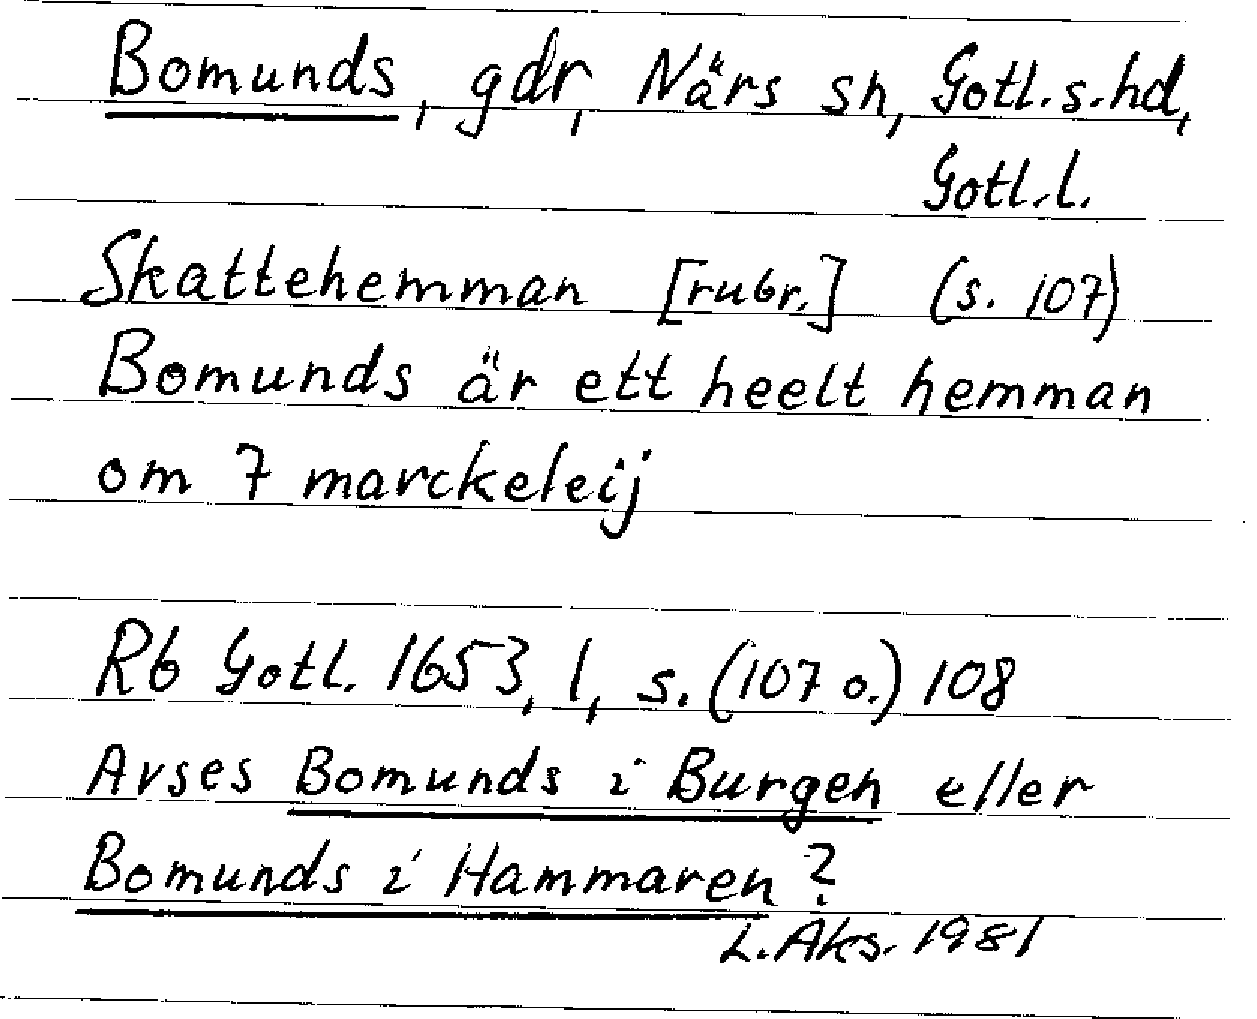 Bomunds, gdr, Närs sn, Gotl. s. hd,
Gotl. l.
Skattehemman [rubr.] (s. 107)
Bomunds är ett heelt hemman
om 7 marckeleij
Rb Gotl. 1653, 1, s. (107 o.) 108
Avses Bomunds i Burgen eller
Bomunds i Hammaren?
L. Aks. 1981